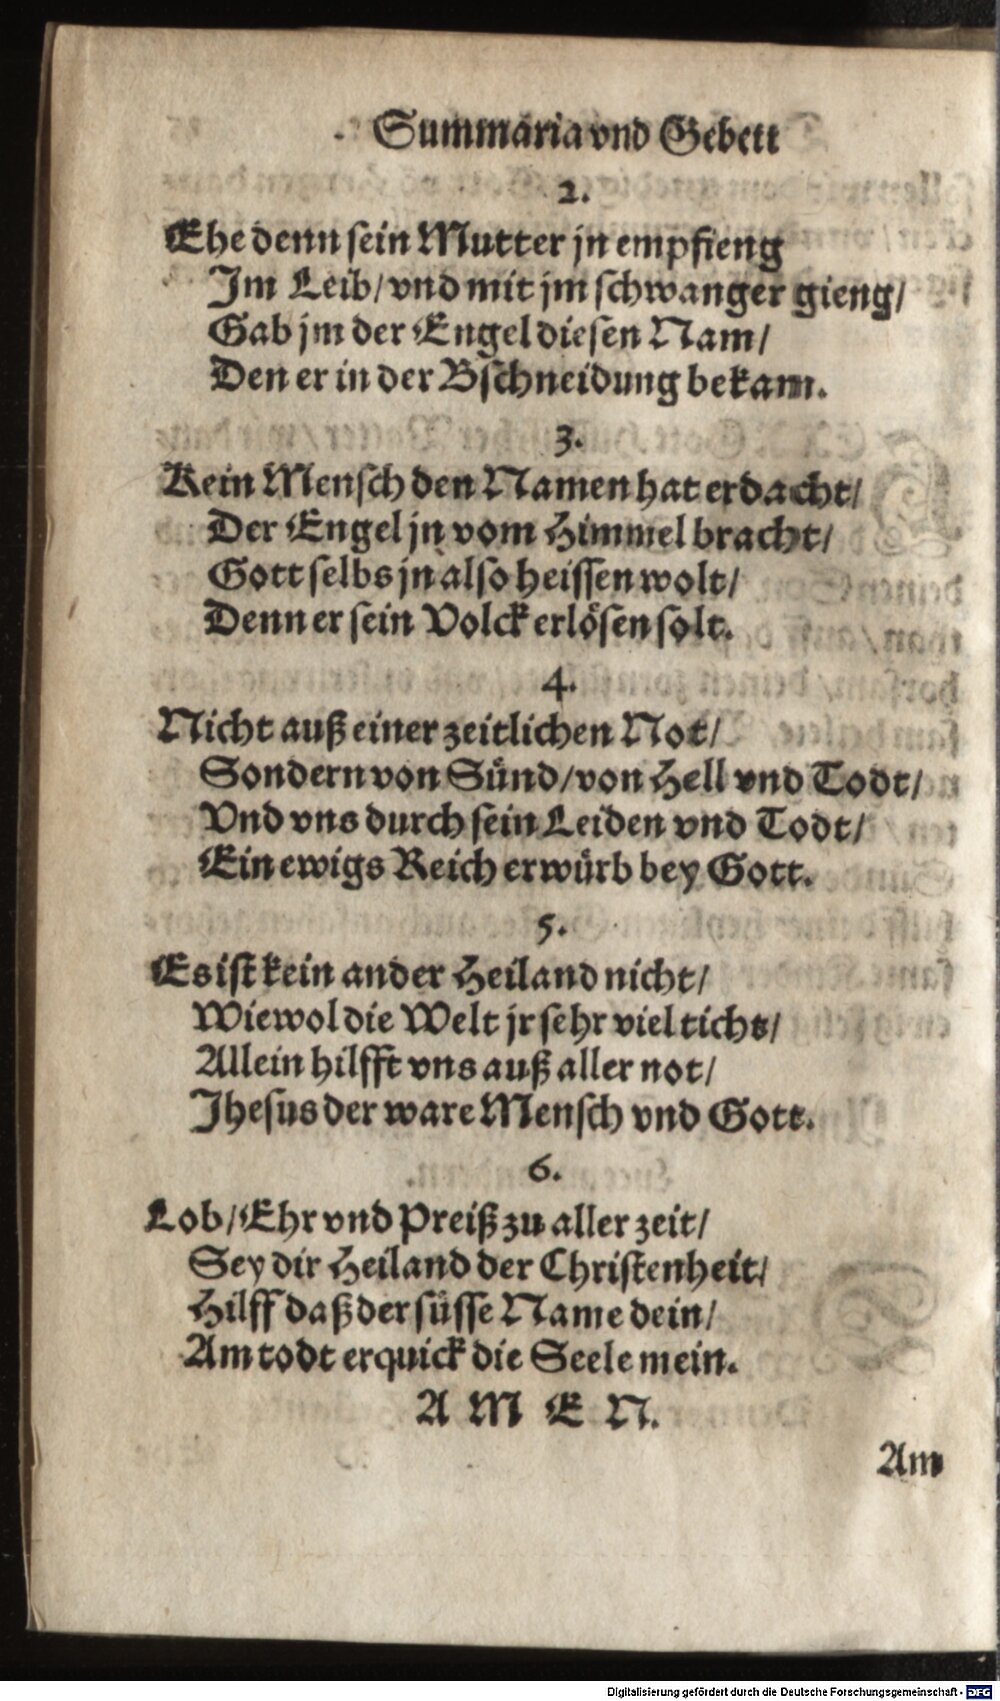 Summaria vnd Gebett
2.
Ehe denn sein Mutter jn empfieng
Im Leib/ vnd mit jm schwanger gieng/
Gab jm der Engel diesen Nam/
Den er in der Bschneidung bekam.
3.
Kein Mensch den Namen hat erdacht/
Der Engel jn vom Himmel bracht/
Gott selbs jn also heissen wolt/
Denn er sein Volck erlösen solt.
4.
Nicht auß einer zeitlichen Not/
Sondern von Sünd/ von Hell vnd Todt/
Vnd vns durch sein Leiden vnd Todt/
Ein ewigs Reich erwürb bey Gott.
5.
Es ist kein ander Heiland nicht/
Wiewol die Welt jr sehr viel ticht/
Allein hilfft vns auß aller not/
Jhesus der ware Mensch vnd Gott.
6.
Lob/ Ehr vnd Preiß zu aller zeit/
Sey dir Heiland der Christenheit/
Hilff daß der süsse Name dein/
Am todt erquick die Seele mein.
A M E N.
Am
Digitalisierung gefördert durch die Deutsche Forschungsgemeinschaft - DFG